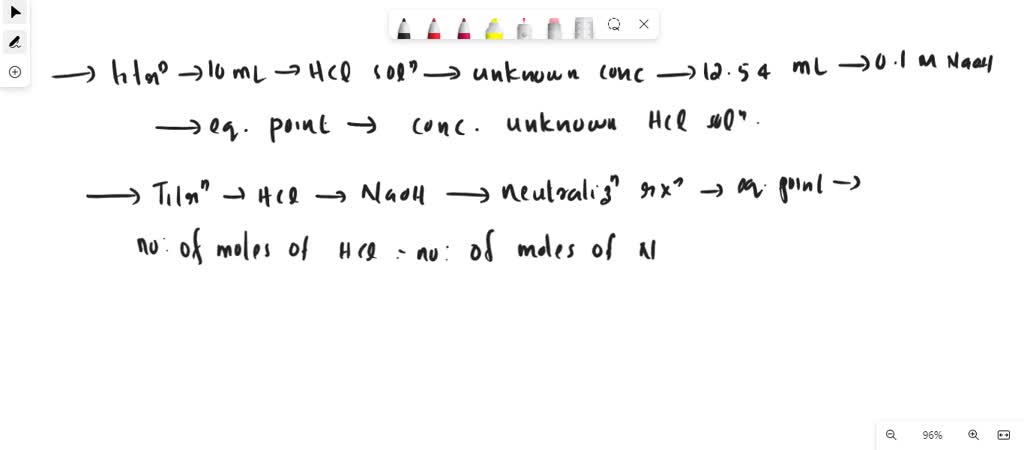 → titrnⁿ → 10 mL → HCl solⁿ → unknown conc → 12.54 mL → 0.1 M NaOH
→ eq. point → conc. unknown HCl solⁿ.
→ Titrnⁿ → HCl → NaOH → neutralizⁿ rxⁿ → eq. point →
no: of moles of HCl = no: of moles of N
96%